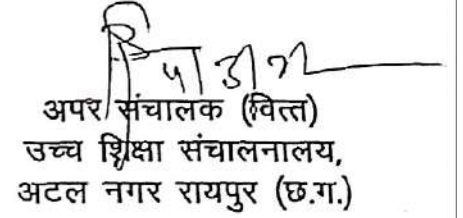 अपर संचालक (वित्त)
उच्च शिक्षा संचालनालय,
अटल नगर रायपुर (छ.ग.)